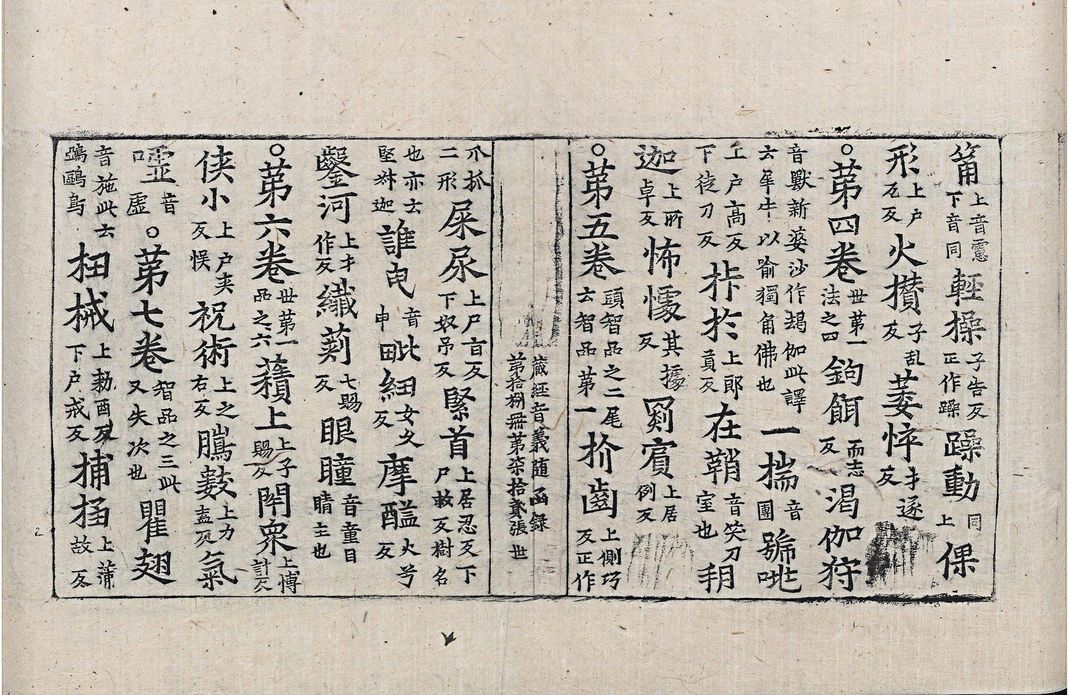 莆上音䨥下音同輕操子告反正作躁躁動同上倮
形上戶瓦反火攅子乱反萎悴才遂反
○苐四卷世第一法之四鉤餌而志反渴伽狩
音獸新婆沙作朅伽此譯云犀牛以喻獨角佛也一揣音團號咷
上戶高反下徒刀反拤於上郎貢反在鞘音笑刀室也𦍒
迦上所卓反怖懅其據反罽賔上居例反
○苐五卷頭智品之二尾云智品第一扴齒上側巧反正作
藏經音義随函錄
第拾捌冊第柒拾貳張 世
爪抓二形屎尿上尸旨反下奴吊反緊首上居忍反下尸救反樹名
也亦云堅䋈迦誰㲋音申毗紐女久反摩醯火兮反
鑿河上才作反纎𠟪七賜反眼瞳音童目睛主也
○苐六卷世第一品之六䕆上上子賜反閇衆上博計反
侠小上戶夾反悮祝術上之右反騰薮上力盍反氣
嘘音虛○苐七卷智品之三此又失次也瞿翅
音施此云鵶鷗鳥杻械上勅酉反下戶戒反捕㨄上蒲故反